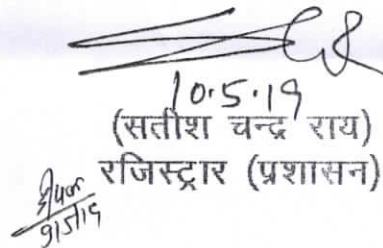 10.5.19
(सतीश चन्द्र राय)
रजिस्ट्रार (प्रशासन)
9/5/19